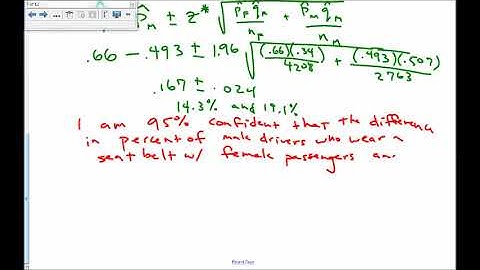 p̂_M ± z* √ p̂_F q̂_F / n_F + p̂_M q̂_M / n_M
.66 - .493 ± 1.96 √ (.66)(.34) / 4208 + (.493)(.507) / 2763
.167 ± .024
14.3% and 19.1%
I am 95% confident that the difference
in percent of male drivers who wear a
seat belt w/ female passengers an